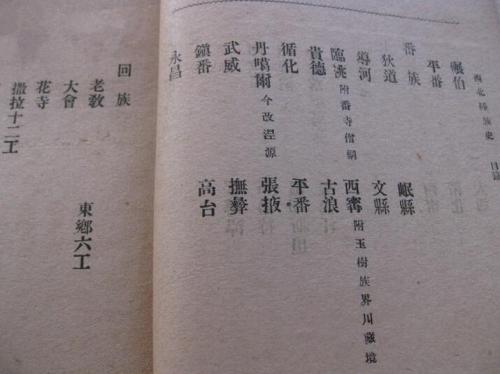 西北種族史 目錄
碾伯
平番
番族
狄道 岷縣
導河 文縣
臨洮附番寺僧綱 西寗附玉樹族界川藏境
貴德 古浪
循化 平番
丹噶爾今改湟源 張掖
武威 撫彝
鎮番 高台
永昌
回族
老教
大會 東鄉六工
花寺
撒拉十二工